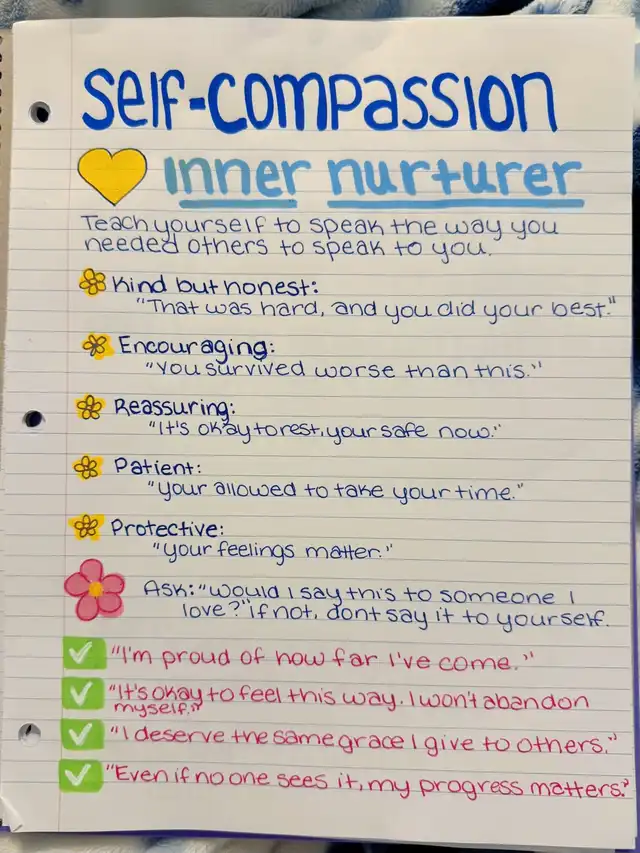 Self-Compassion
inner nurturer
Teach yourself to speak the way you
needed others to speak to you.
Kind but honest:
"That was hard, and you did your best."
Encouraging:
"You survived worse than this."
Reassuring:
"It's okay to rest, your safe now."
Patient:
"Your allowed to take your time."
Protective:
"Your feelings matter."
Ask: "would I say this to someone I
love?" if not, dont say it to yourself.
"I'm proud of how far I've come."
"It's okay to feel this way. I won't abandon
myself."
"I deserve the same grace I give to others."
"Even if no one sees it, my progress matters."